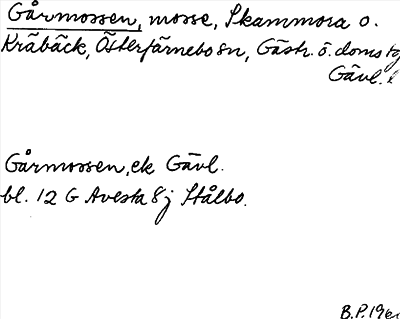 Gårmossen, mosse, Skammora o.
Kräbäck, Österfärnebo sn, Gästr. ö. doms tg
Gävl. l
Gårmossen, ek Gävl.
bl. 12 G Avesta 8 j Stålbo.
B.P. 196